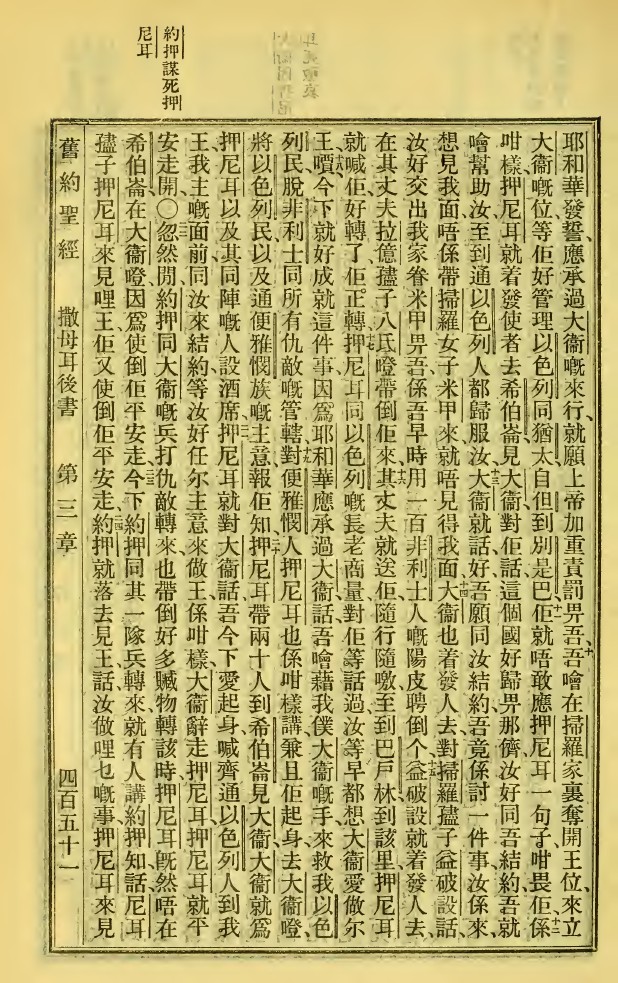 耶和華發誓應承過大衞嘅來行、就願上帝加重責罰畀吾、十吾噲在掃羅家裏奪開王位、來立
大衞嘅位等佢好管理以色列同猶太自但到別是巴十一佢就唔敢應押尼耳一句子、咁畏佢係十二
咁樣、押尼耳就着發使者去希伯崙見大衞、對佢話這個國好歸畀那儕、汝好同吾結約、吾就
噲幫助汝至到通以色列人都歸服汝、十三大衞就話好、吾願同汝結約、吾竟係討一件事、汝係來
想見我面唔係帶掃羅女子米甲來、就唔見得我面、十四大衞也着發人去、對掃羅孻子益破設話、
汝好交出我家眷米甲畀吾、係吾早時用一百非利士人嘅陽皮聘倒个、十五益破設就着發人去、
在其丈夫拉億孻子八氐噔帶倒佢來、十六其丈夫就送佢、隨行隨噭、至到巴戶林、到該里押尼耳
就喊佢好轉了、佢正轉、十七押尼耳同以色列嘅長老商量、對佢等話過、汝等早都想大衞愛做尔
王、十八嚽今下就好成就這件事、因爲耶和華應承過大衞話、吾噲藉我僕大衞嘅手、來救我以色
列民、脫非利士同所有仇敵嘅管轄、十九對便雅憫人、押尼耳也係咁樣講、兼且佢起身去大衞噔、
將以色列民以及通便雅憫族嘅主意報佢知、二十押尼耳帶兩十人到希伯崙見大衞、大衞就爲
押尼耳以及其同陣嘅人設酒席、押尼耳就對大衞話、吾今下愛起身喊齊通以色列人到我
王我主嘅面前、同汝來結約、等汝好任尔主意來做王、係咁樣大衞辭走押尼耳、押尼耳就平
安走開、〇忽然間約押同大衞嘅兵打仇敵轉來、也帶倒好多贓物轉、該時押尼耳既然唔在
希伯崙在大衞噔、因爲使倒佢平安走、今下約押同其一隊兵轉來、就有人講約押知話、尼耳
孻子押尼耳來見哩王、佢又使倒佢平安走、約押就落去見王、話汝做哩乜嘅事、押尼耳來見
舊約聖經 撒母耳後書 第三章 四百五十一
約押謀死押
尼耳